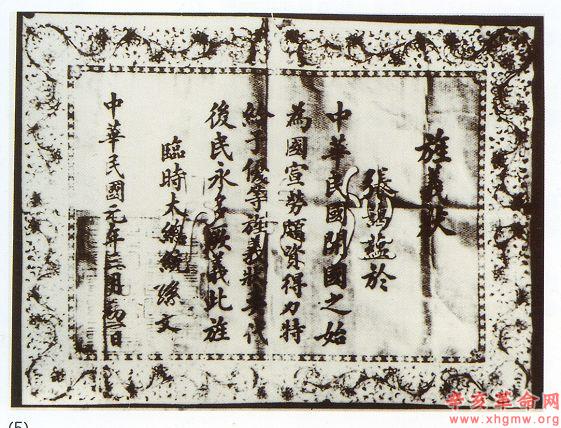 旌義狀
張藴於
中華民國開國之始
為國宣勞頗資得力特
給予優等旌義狀奕代
後民永多厥義此旌
臨時大總統孫文
中華民國元年三月初一日
(5)
辛亥革命网
www.xhgmw.org